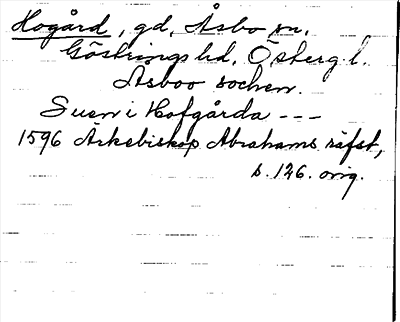 Hogård, gd, Åsbo sn.
Göstrings hd, Östergl.
Asboo sochen.
Suen i Hofgårda ---
1596 Ärkebiskop Abrahams räfst,
s. 126. orig.